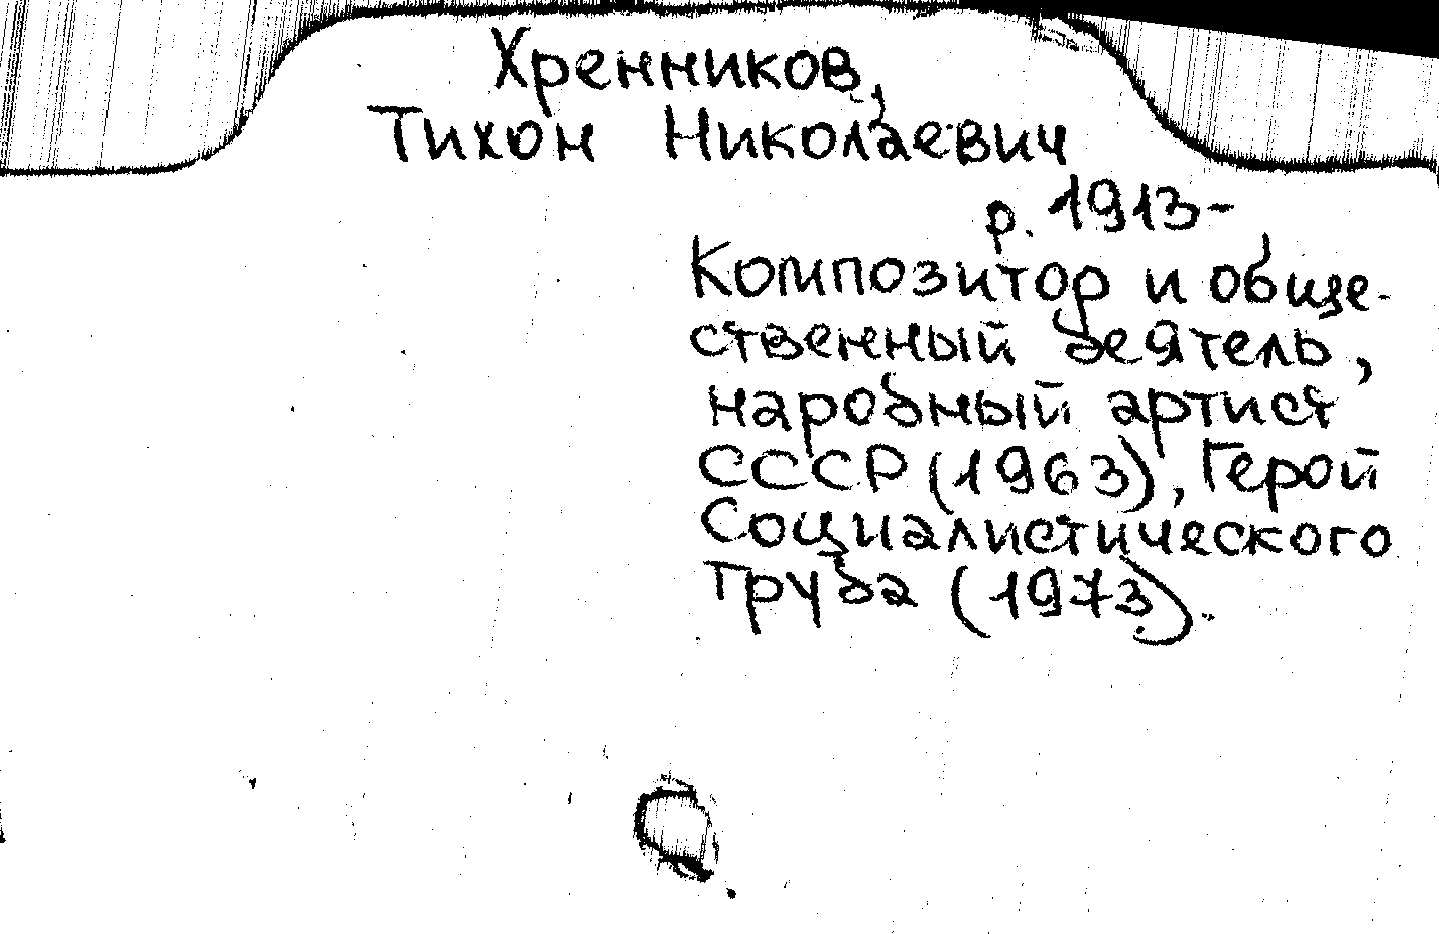 Хренников,
Тихон Николаевич
р. 1913-
Композитор и обще-
ственный деятель,
народный артист
СССР (1963), Герой
Социалистического
Труда (1973).